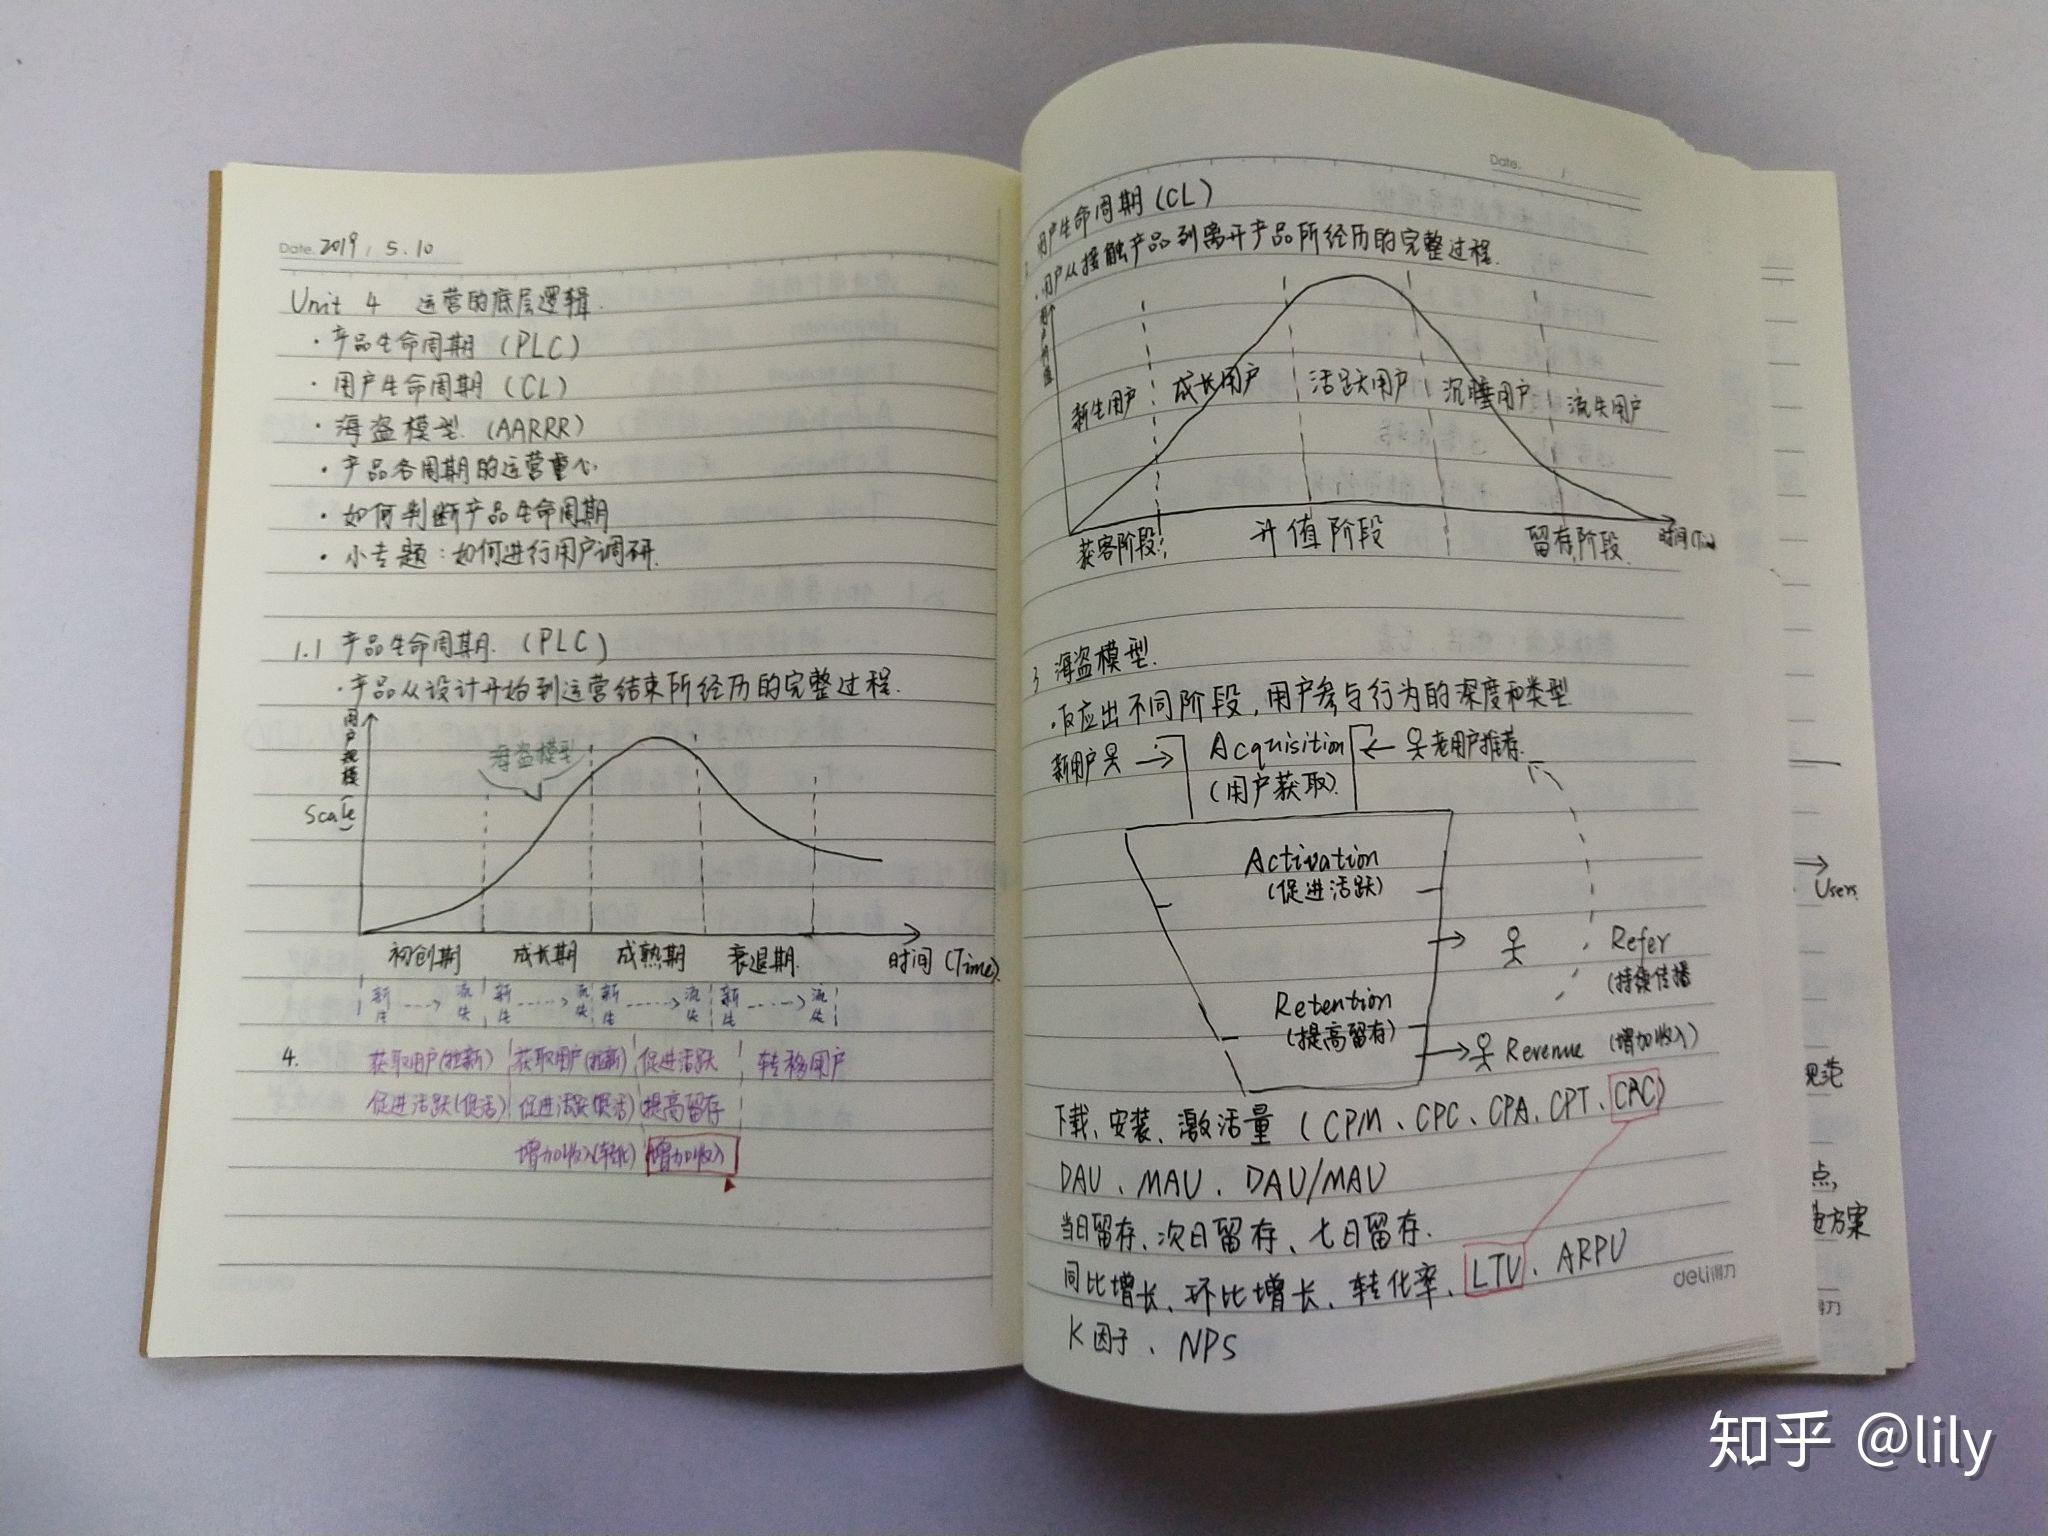 Date. 2019 / 5.10
Unit 4 运营的底层逻辑.
· 产品生命周期 (PLC)
· 用户生命周期 (CL)
· 海盗模型. (AARRR)
· 产品各周期的运营重心.
· 如何判断产品生命周期
· 小专题: 如何进行用户调研.
1.1 产品生命周期. (PLC)
· 产品从设计开始到运营结束所经历的完整过程.
用户规模
(Scale)
海盗模型
初创期 成长期 成熟期 衰退期. 时间 (Time)
新生 ---> 流失 新生 ----> 流失 新生 ----> 流失 新生 ----> 流失
4. 获取用户(拉新) 获取用户(拉新) 促进活跃 转移用户
促进活跃(促活) 促进活跃(促活) 提高留存
增加收入(转化) 增加收入
Date. /
用户生命周期 (CL)
· 用户从接触产品到离开产品所经历的完整过程.
用户价值
新生用户 成长用户 活跃用户 沉睡用户 流失用户
获客阶段 升值阶段 留存阶段. 时间
3 海盗模型.
· 反应出不同阶段, 用户参与行为的深度和类型
新用户 → Acquisition ← 老用户推荐.
(用户获取).
Activation
(促进活跃)
→ Refer
(持续传播
Retention
(提高留存)
→ Revenue (增加收入)
下载、安装、激活量 (CPM、CPC、CPA、CPT、CAC)
DAU、MAU、DAU/MAU
当日留存、次日留存、七日留存.
同比增长、环比增长、转化率、LTV、ARPU
K因子、NPS
deli得力
Users
规范
点,
方案
得力
知乎 @lily